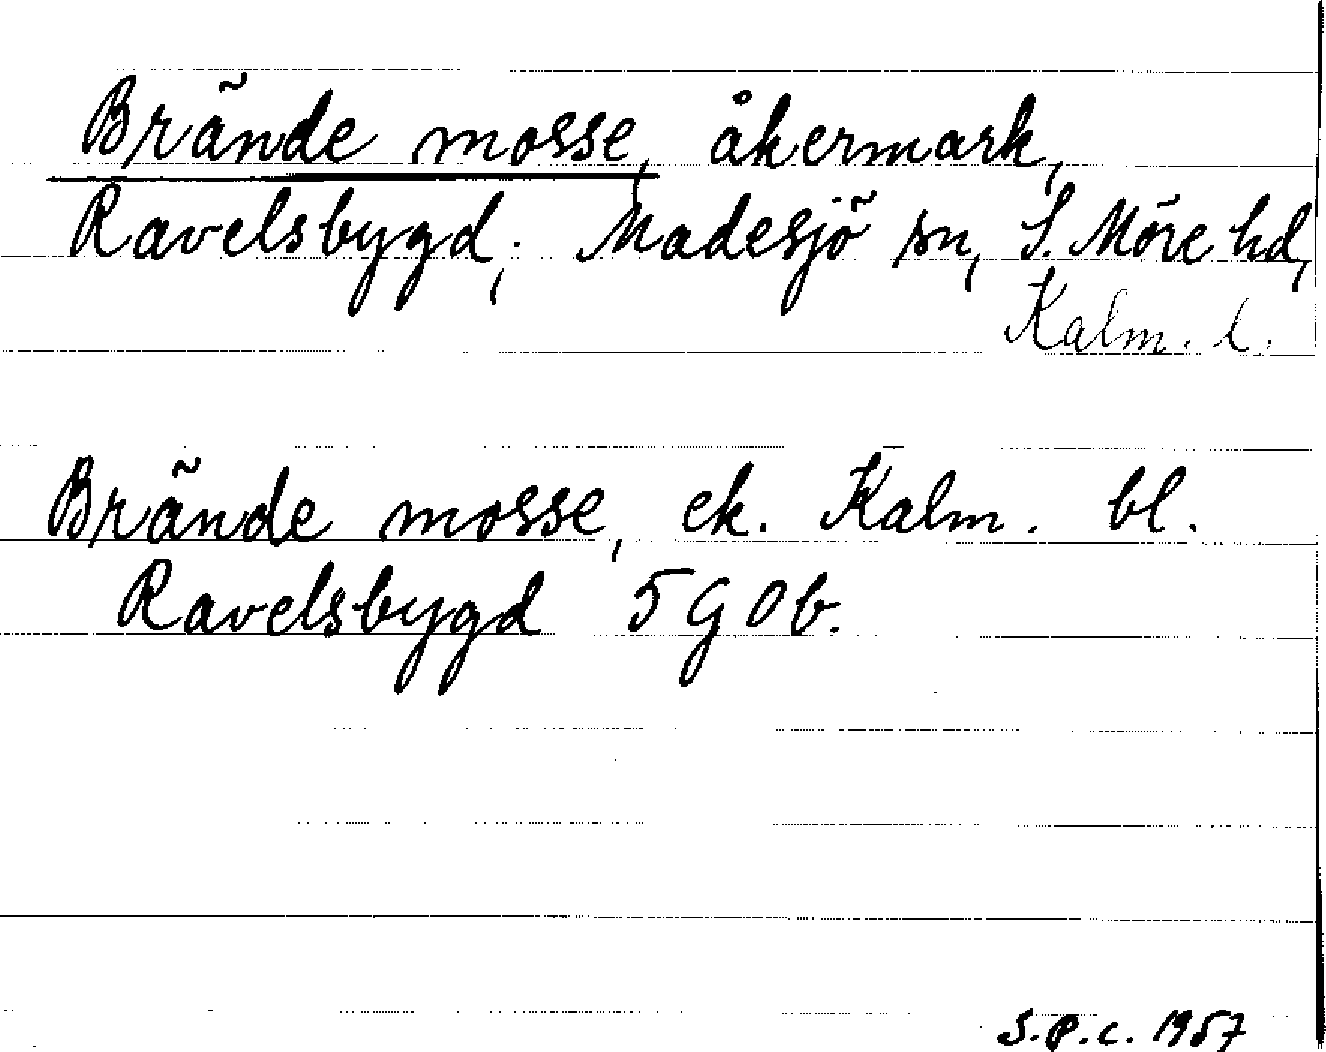 Brände mosse, åkermark,
Ravelsbygd, Madesjö sn, S. Möre hd,
Kalm. l.
Brände mosse, ek. Kalm. bl.
Ravelsbygd 5 G 0 b.
S.P.C. 1957